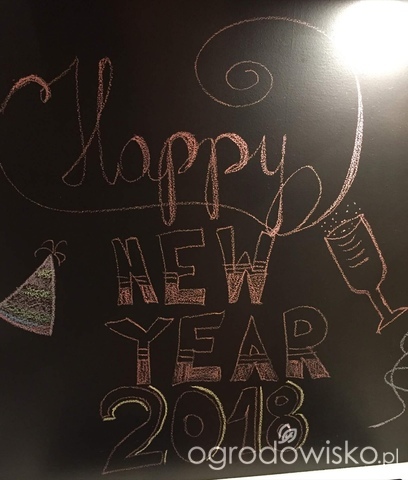 Happy
NEW
YEAR
2018
ogrodowisko.pl